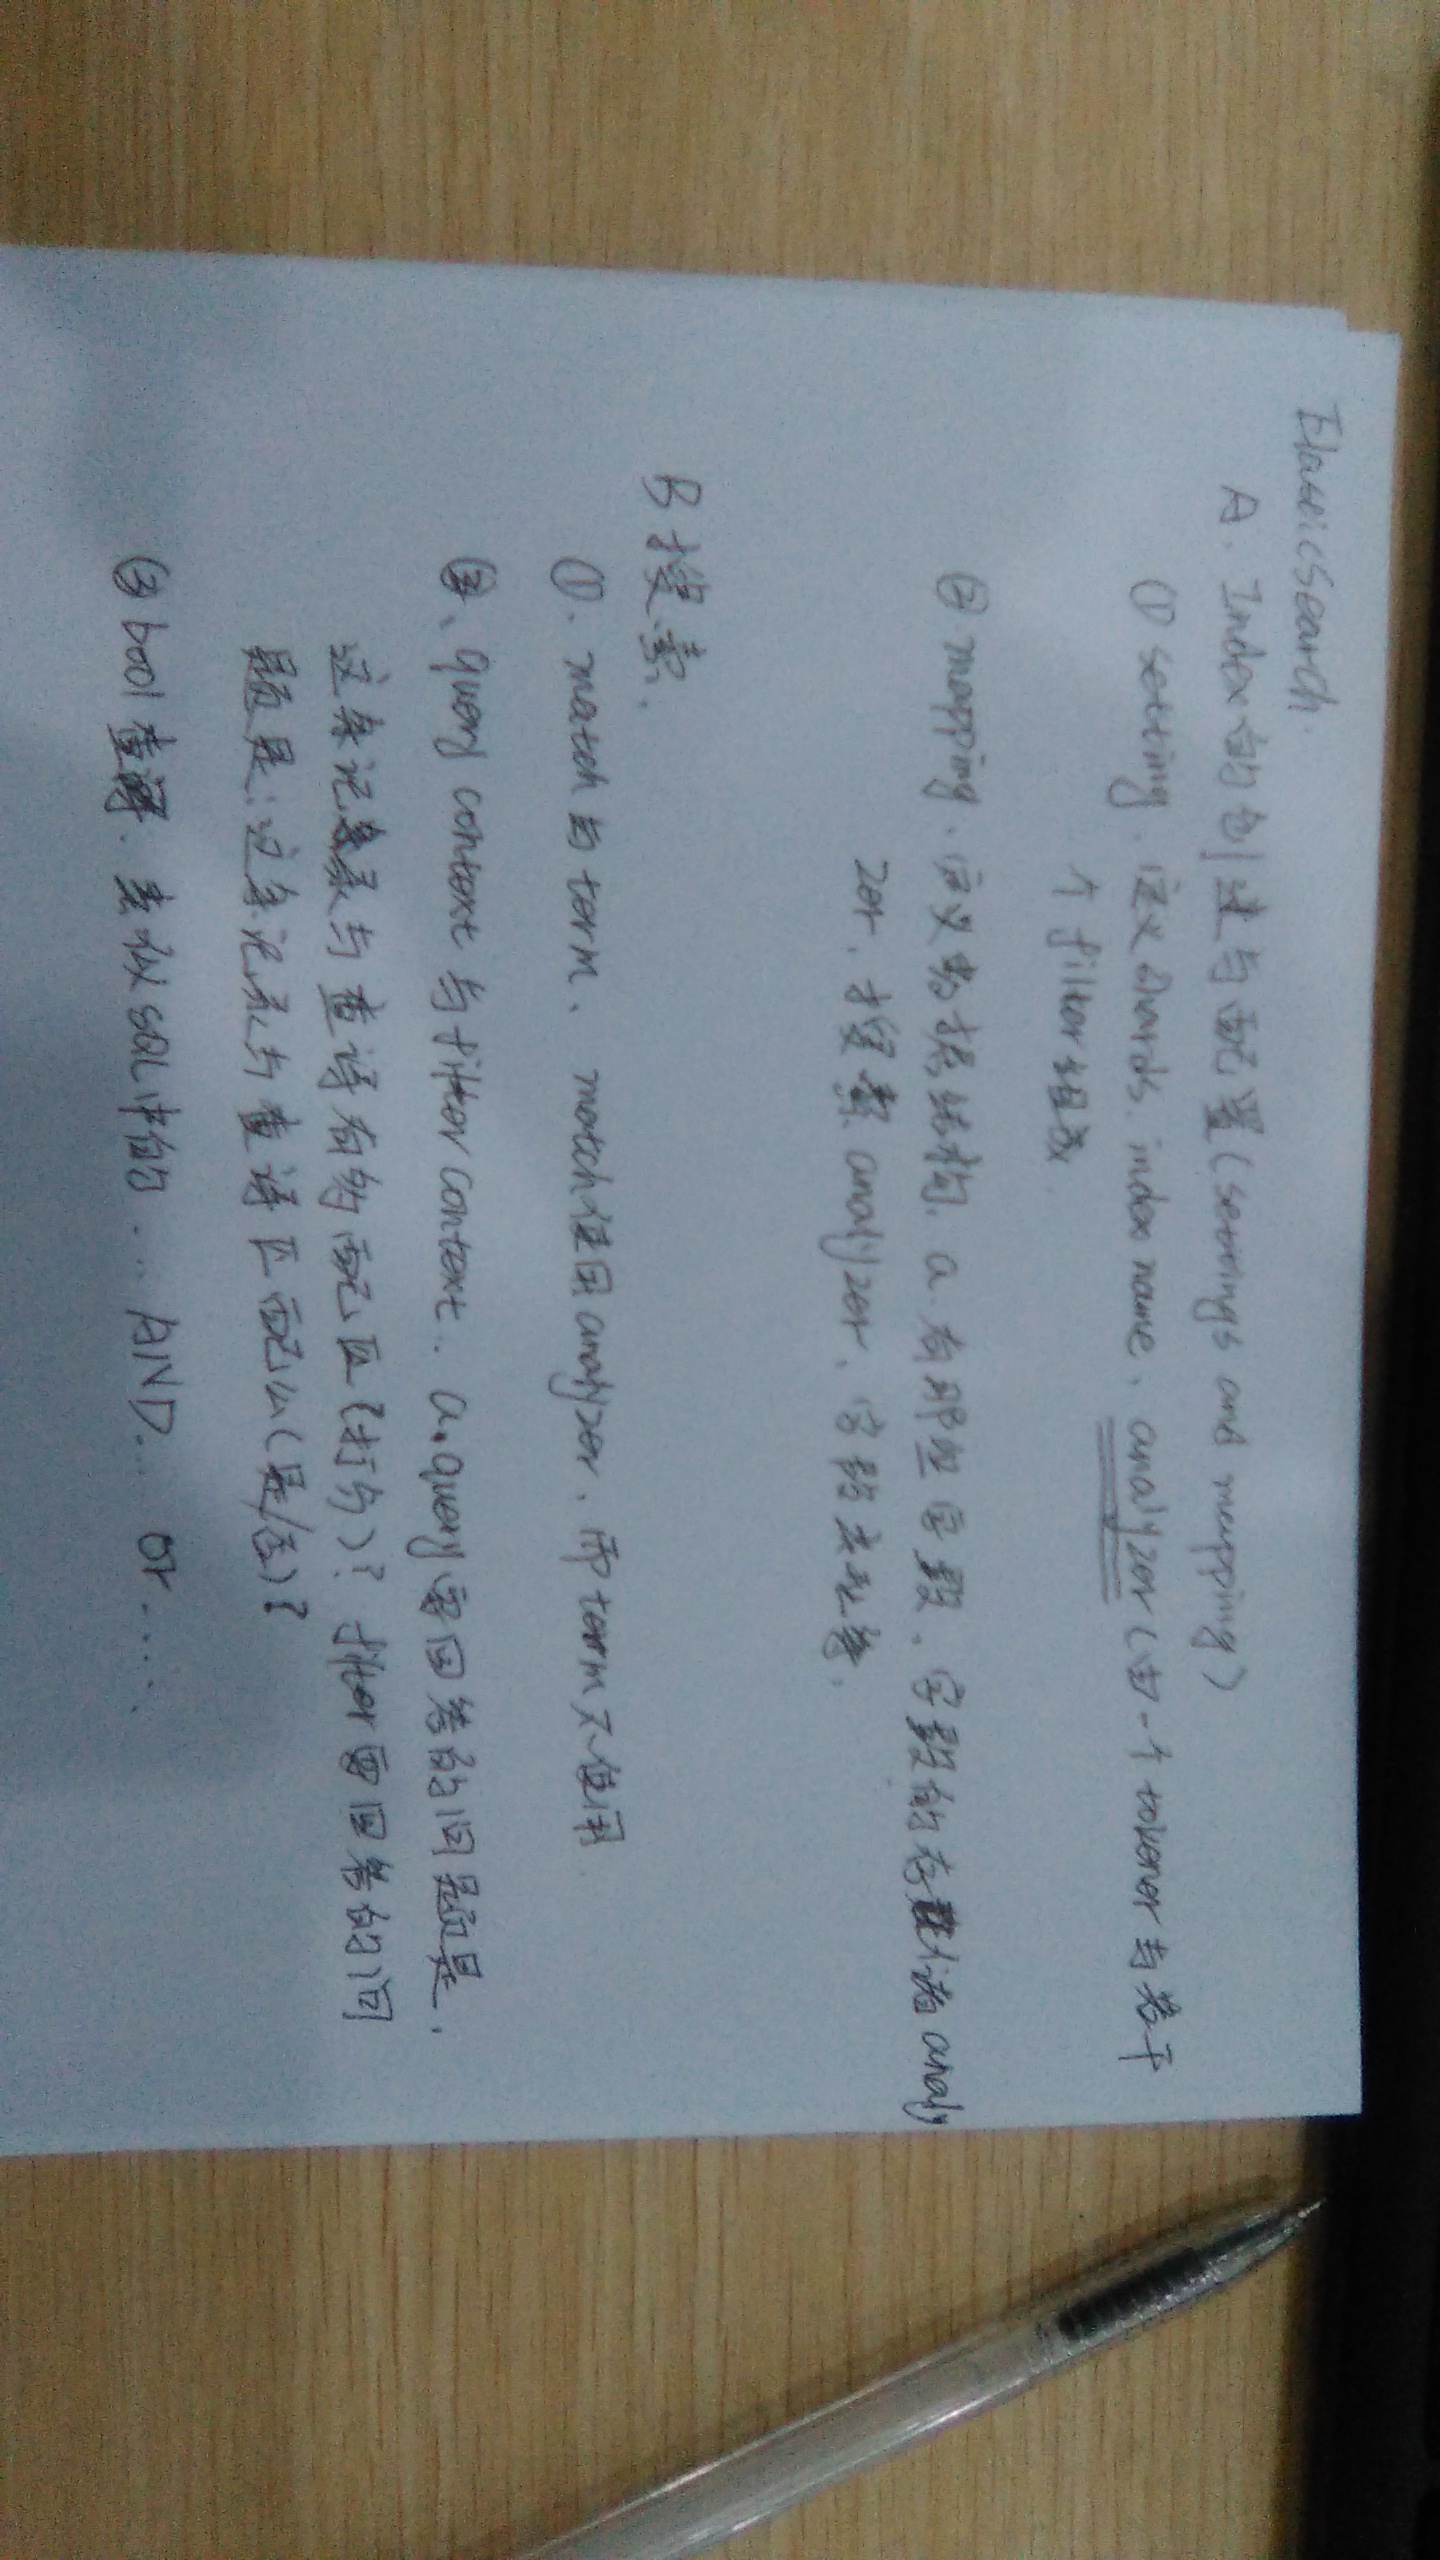 ElasticSearch.
A. Index的创建与配置(settings and mapping)
① setting. 定义shards. index name、analyzer(由一个tokener与若干
个filter组成.
② mapping. 定义数据结构. a. 有那些字段、字段的存储 analy
zer、搜索 analyzer、字段类型等.
B 搜索.
①. match 与 term、match使用analyzer. 而term不使用.
②、query context 与 filter context. a. query需回答的问题是.
这条记录与查询有多匹配(打分)? filter需回答的问
题是:这条记录与查询匹配么(是/否)?
③ bool 查询. 类似SQL中的 ... AND... or....